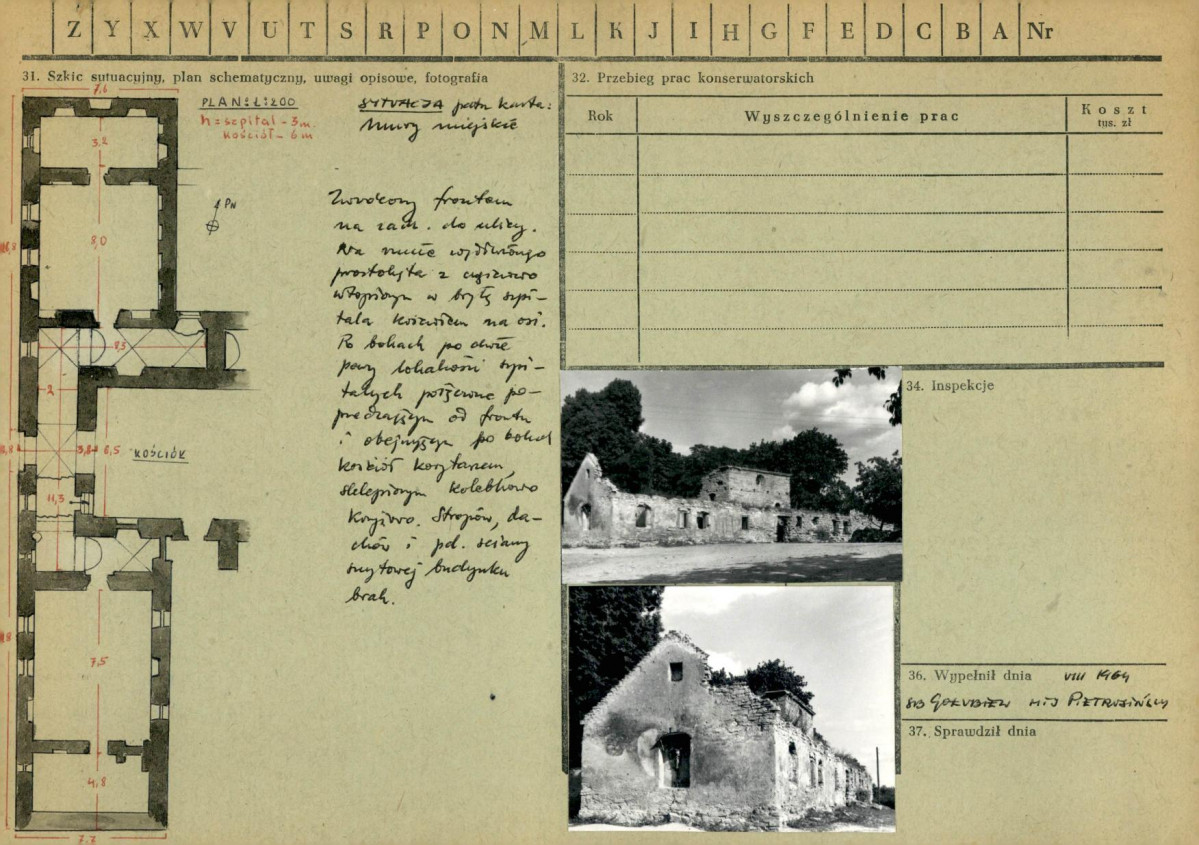 Z Y X W V U T S R P O N M L K J I H G F E D C B A Nr
31. Szkic sytuacyjny, plan schematyczny, uwagi opisowe, fotografia
PLAN: 1:200
h = szpital - 3 m.
kościół - 6 m
SYTUACJA patrz karta:
Mury miejskie
Zwrócony frontem
na zach. do ulicy.
Na rzucie wydłużonego
prostokąta z częściowo
wtopionym w bryłę szpi-
tala kościołem na osi.
Po bokach po dwie
pary lokalności szpi-
talnych połączone po-
przedzającym od frontu
i obejmującym po bokach
kościół korytarzem,
sklepionym kolebkowo
krzyżowo. Stropów, da-
chów i pd. ściany
szczytowej budynku
brak.
7,6
3,2
PN
8,0
8,3
2
3,8
6,5
KOŚCIÓŁ
11,3
7,5
4,8
7.7
32. Przebieg prac konserwatorskich
Rok
Wyszczególnienie prac
Koszt
tys. zł
34. Inspekcje
36. Wypełnił dnia VIII 1964
GOŁUBIEW PIETRUSIŃSCY
37. Sprawdził dnia